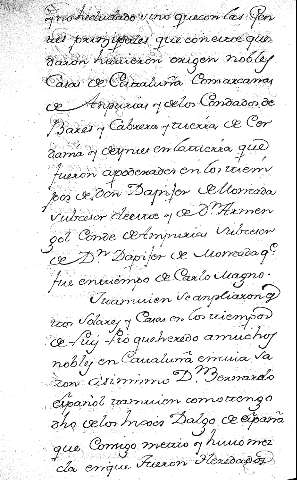 no he dudado sino que con las Gen
tes principales que con este que
daron hicieron origen nobles
Casas de Cataluña Comarcanas
de Anpurias y de los Condados de
Bares y Cabrera y tierra de Cer
daña y despues en la tierra que
fueron apoderados en los tiem
pos de Don Dapifer de Moncada
subcesor de este y de Dn Armen
gol Conde de Ampurias subcesor
de Dn Dapifer de Moncada q.e
fue en tiempo de Carlo Magno.
Tamuien se anpliaron
tros Solares y Casas en los tiempos
de que heredo a muchos
nobles en Cataluña
Dn Bernardo
español tamuien como tengo
dho de los hijos Dalgo de españa
que Consigo metio y huuo mez
cla en que fueron Heredados